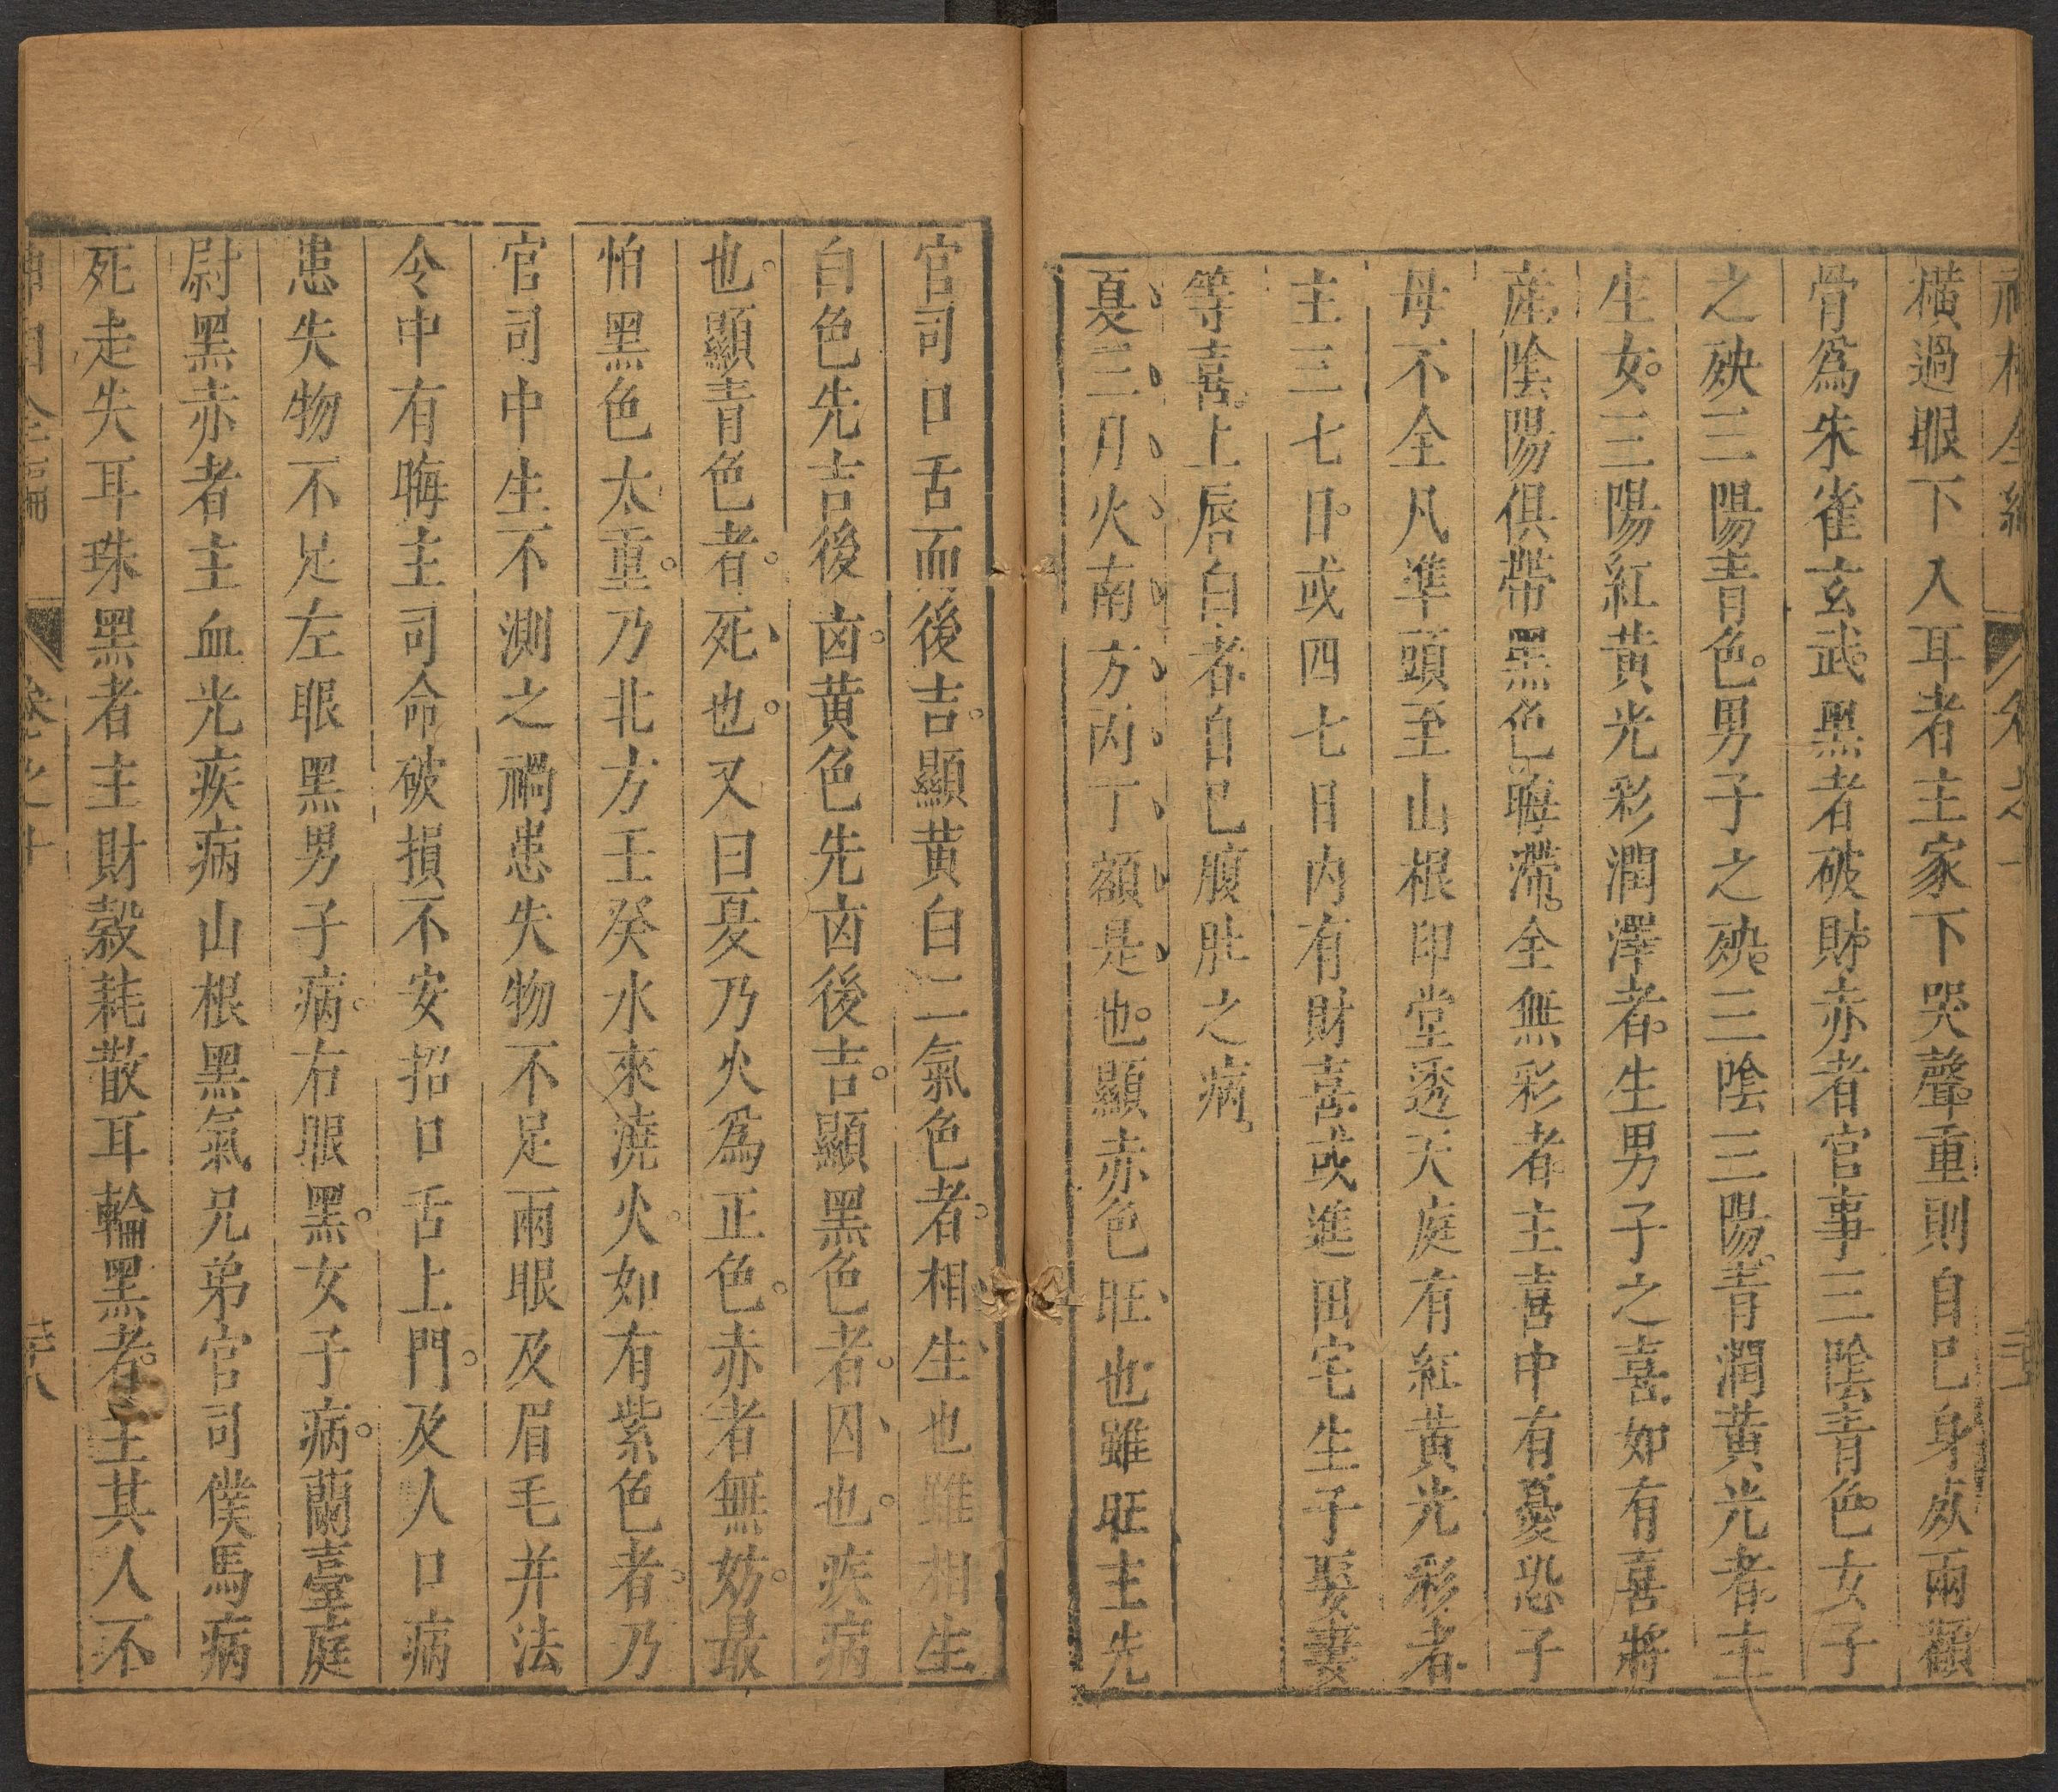 橫過眼下入耳者主家下哭聲重則自己身妖兩顴
骨爲朱雀玄武黑者破財赤者官事三陰青色女子
之殃三陽青色男子之殃三陰三陽青潤黃光者主
生女三陽紅黃光彩潤澤者生男子之喜如有喜將
產陰陽俱帶黑色晦滯全無彩者主喜中有憂恐子
母不全凡準頭至山根印堂透天庭有紅黃光彩者
主三七日或四七日內有財喜或進田宅生子娶妻
等喜上唇白者自己腹肚之病
夏三月火南方丙丁額是也顯赤色旺也雖旺主先
官司口舌而後吉顯黃白二氣色者相生也雖相生
白色先吉後凶黃色先凶後吉顯黑色者囚也疾病
也顯青色者死也又曰夏乃火爲正色赤者無妨最
怕黑色太重乃北方壬癸水來澆火如有紫色者乃
官司中生不測之禍患失物不足兩眼及眉毛并法
令中有晦主司命破損不安招口舌上門及人口病
患失物不足左眼黑男子病右眼黑女子病蘭臺庭
尉黑赤者主血光疾病山根黑氣兄弟官司僕馬病
死走失耳珠黑者主財穀耗散耳輪黑者主其人不